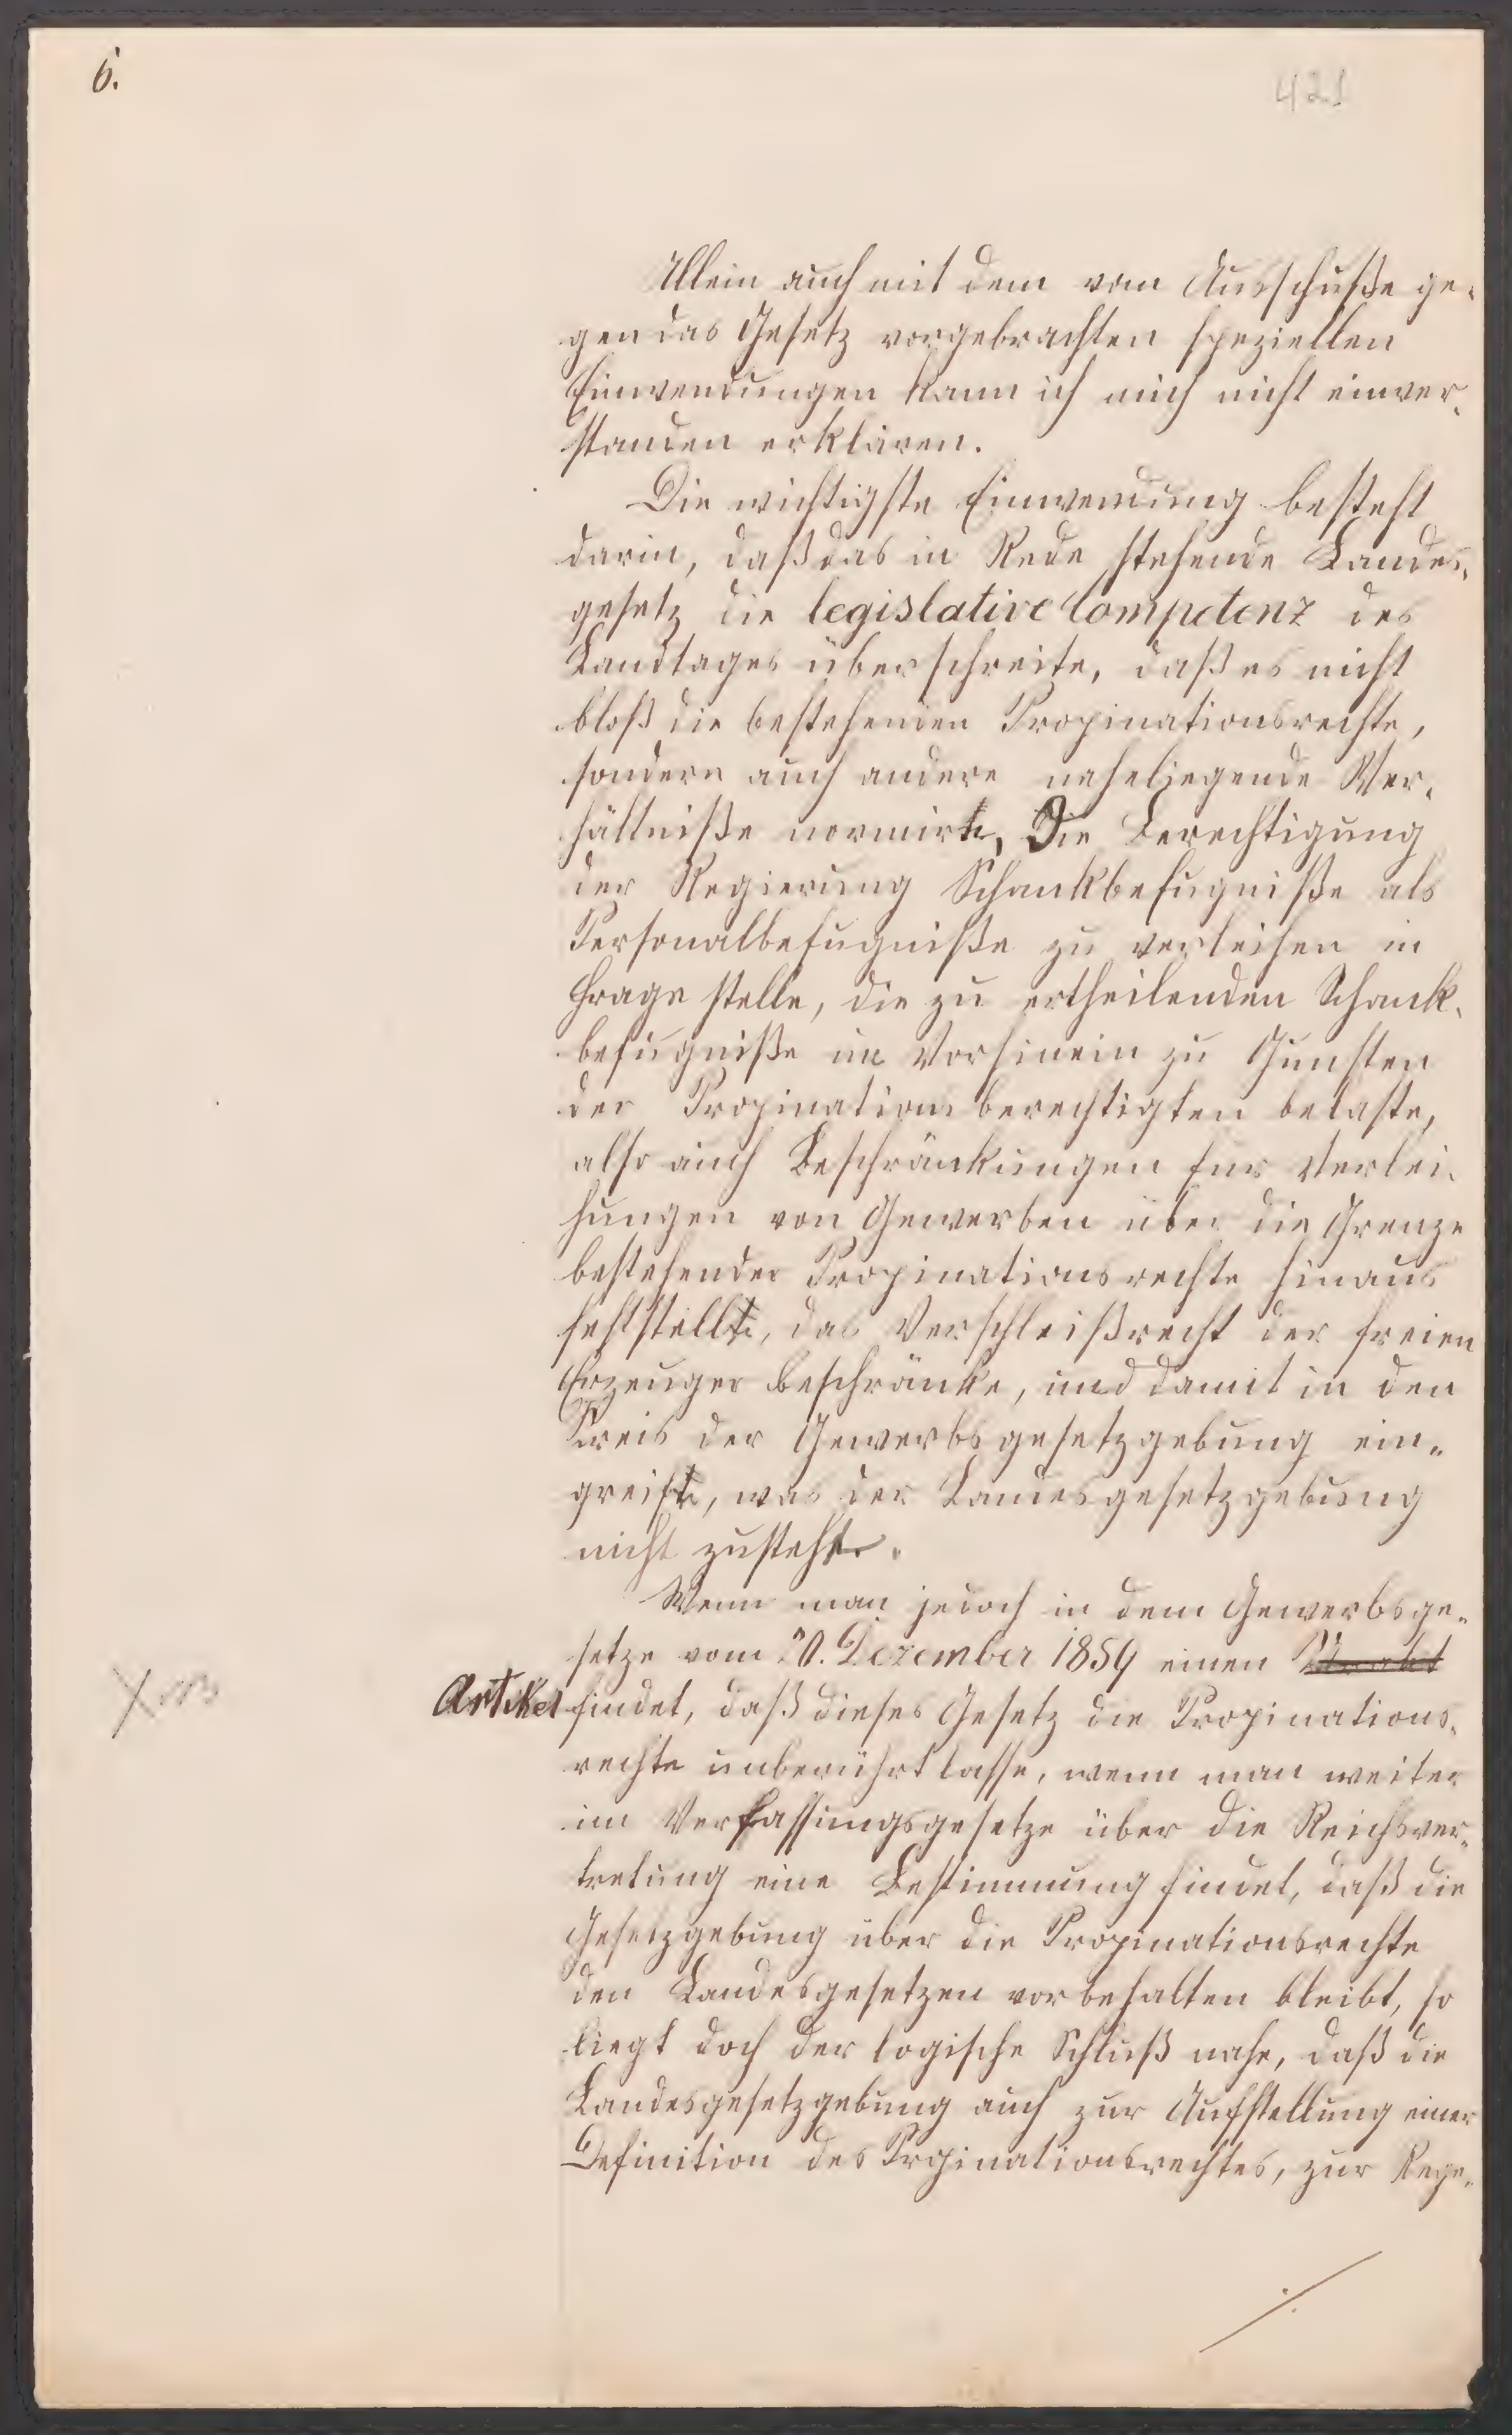 6.
421
Allein auch mit dem vom Ausschuße ge-
gen das Gesetz vorgebrachten speziellen
Einwendungen kann ich mich nicht einver-
standen erklären.
Die wichtigste Einwendung besteht
darin, daß das in Rede stehende Landes-
gesetz die legislative Competenz des
Landtages überschreite, daß es nicht
bloß die bestehenden Propinationsrechte,
sondern auch andere naheliegende Ver-
hältniße normirte, Die Berechtigung
der Regierung Schankbefugniße als
Personalbefugniße zu verleihen in
Frage stelle, die zu ertheilenden Schank-
befugniße im Vorhinein zu Gunsten
der Propinationsberechtigten belaste,
also auch Beschränkungen fur Verlei-
hungen von Gewerben über die Grenze
bestehender Propinationsrechte hinaus
feststellte, das Verschleißrecht der freien
Erzeuger beschränke, und damit in den
Kreis der Gewerbsgesetzgebung ein-
greifte, was der Landesgesetzgebung
nicht zustehe.
Wenn man jedoch in dem Gewerbsge-
setze vom 20. Dezember 1859 einen
Artikel findet, daß dieses Gesetz die Propinations-
rechte unberührt lasse, wenn man weiter
im Verfassungsgesetze über die Reichsver-
tretung eine Bestimmung findet, daß die
Gesetzgebung über die Propinationsrechte
den Landesgesetzen vorbehalten bleibt, so
liegt doch der logische Schluß nahe, daß die
Landesgesetzgebung auch zur Aufstellung einer
Definition des Prpinationsrechtes, zur Rege-
./.